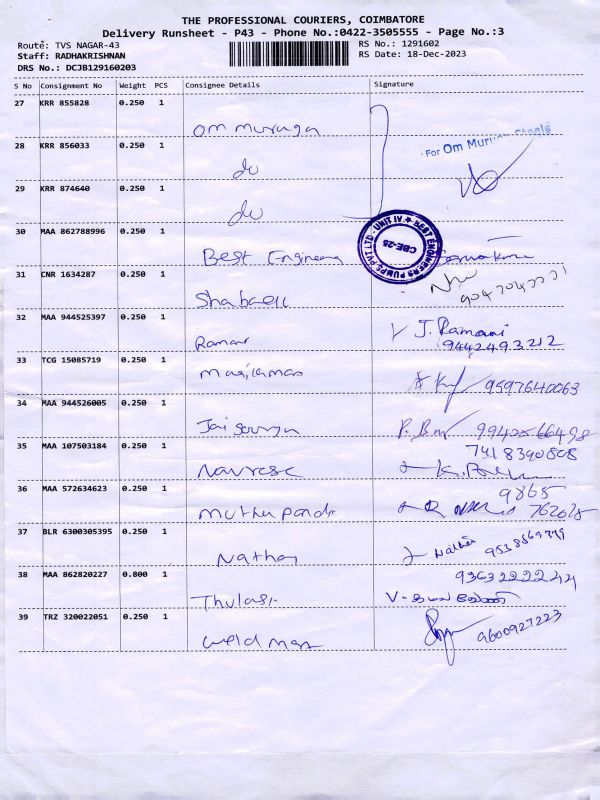 THE PROFESSIONAL COURIERS, COIMBATORE
Delivery Runsheet - P43 - Phone No.:0422-3505555 - Page No.:3
Route: TVS NAGAR-43
RS No.: 1291602
Staff: RADHAKRISHNAN
RS Date: 18-Dec-2023
DRS No.: DCJB129160203
S No Consignment No Weight PCS Consignee Details Signature
27 KRR 855828 0.250 1
Om muruga
28 KRR 856033 0.250 1
For Om Muruga
do
29 KRR 874640 0.250 1
do
30 MAA 862788996 0.250 1
BEST ENGINEERS PUMPS PVT.LTD - UNIT IV
CBE-25
Best Engineering
31 CNR 1634287 0.250 1
Shabeell
32 MAA 944525397 0.250 1
J. Ramani
Ramani
9442493212
33 TCG 15085719 0.250 1
Manikamas
9597640063
34 MAA 944526005 0.250 1
Jai Sourya
9942566498
35 MAA 107503184 0.250 1
7418390808
Navrese
36 MAA 572634623 0.250 1
9865
Muthu pandi
762018
37 BLR 6300305395 0.250 1
Nathan
Nathan
9538569779
38 MAA 862820227 0.800 1
9363222244
Thulasi
39 TRZ 320022051 0.250 1
9600927223
weldman